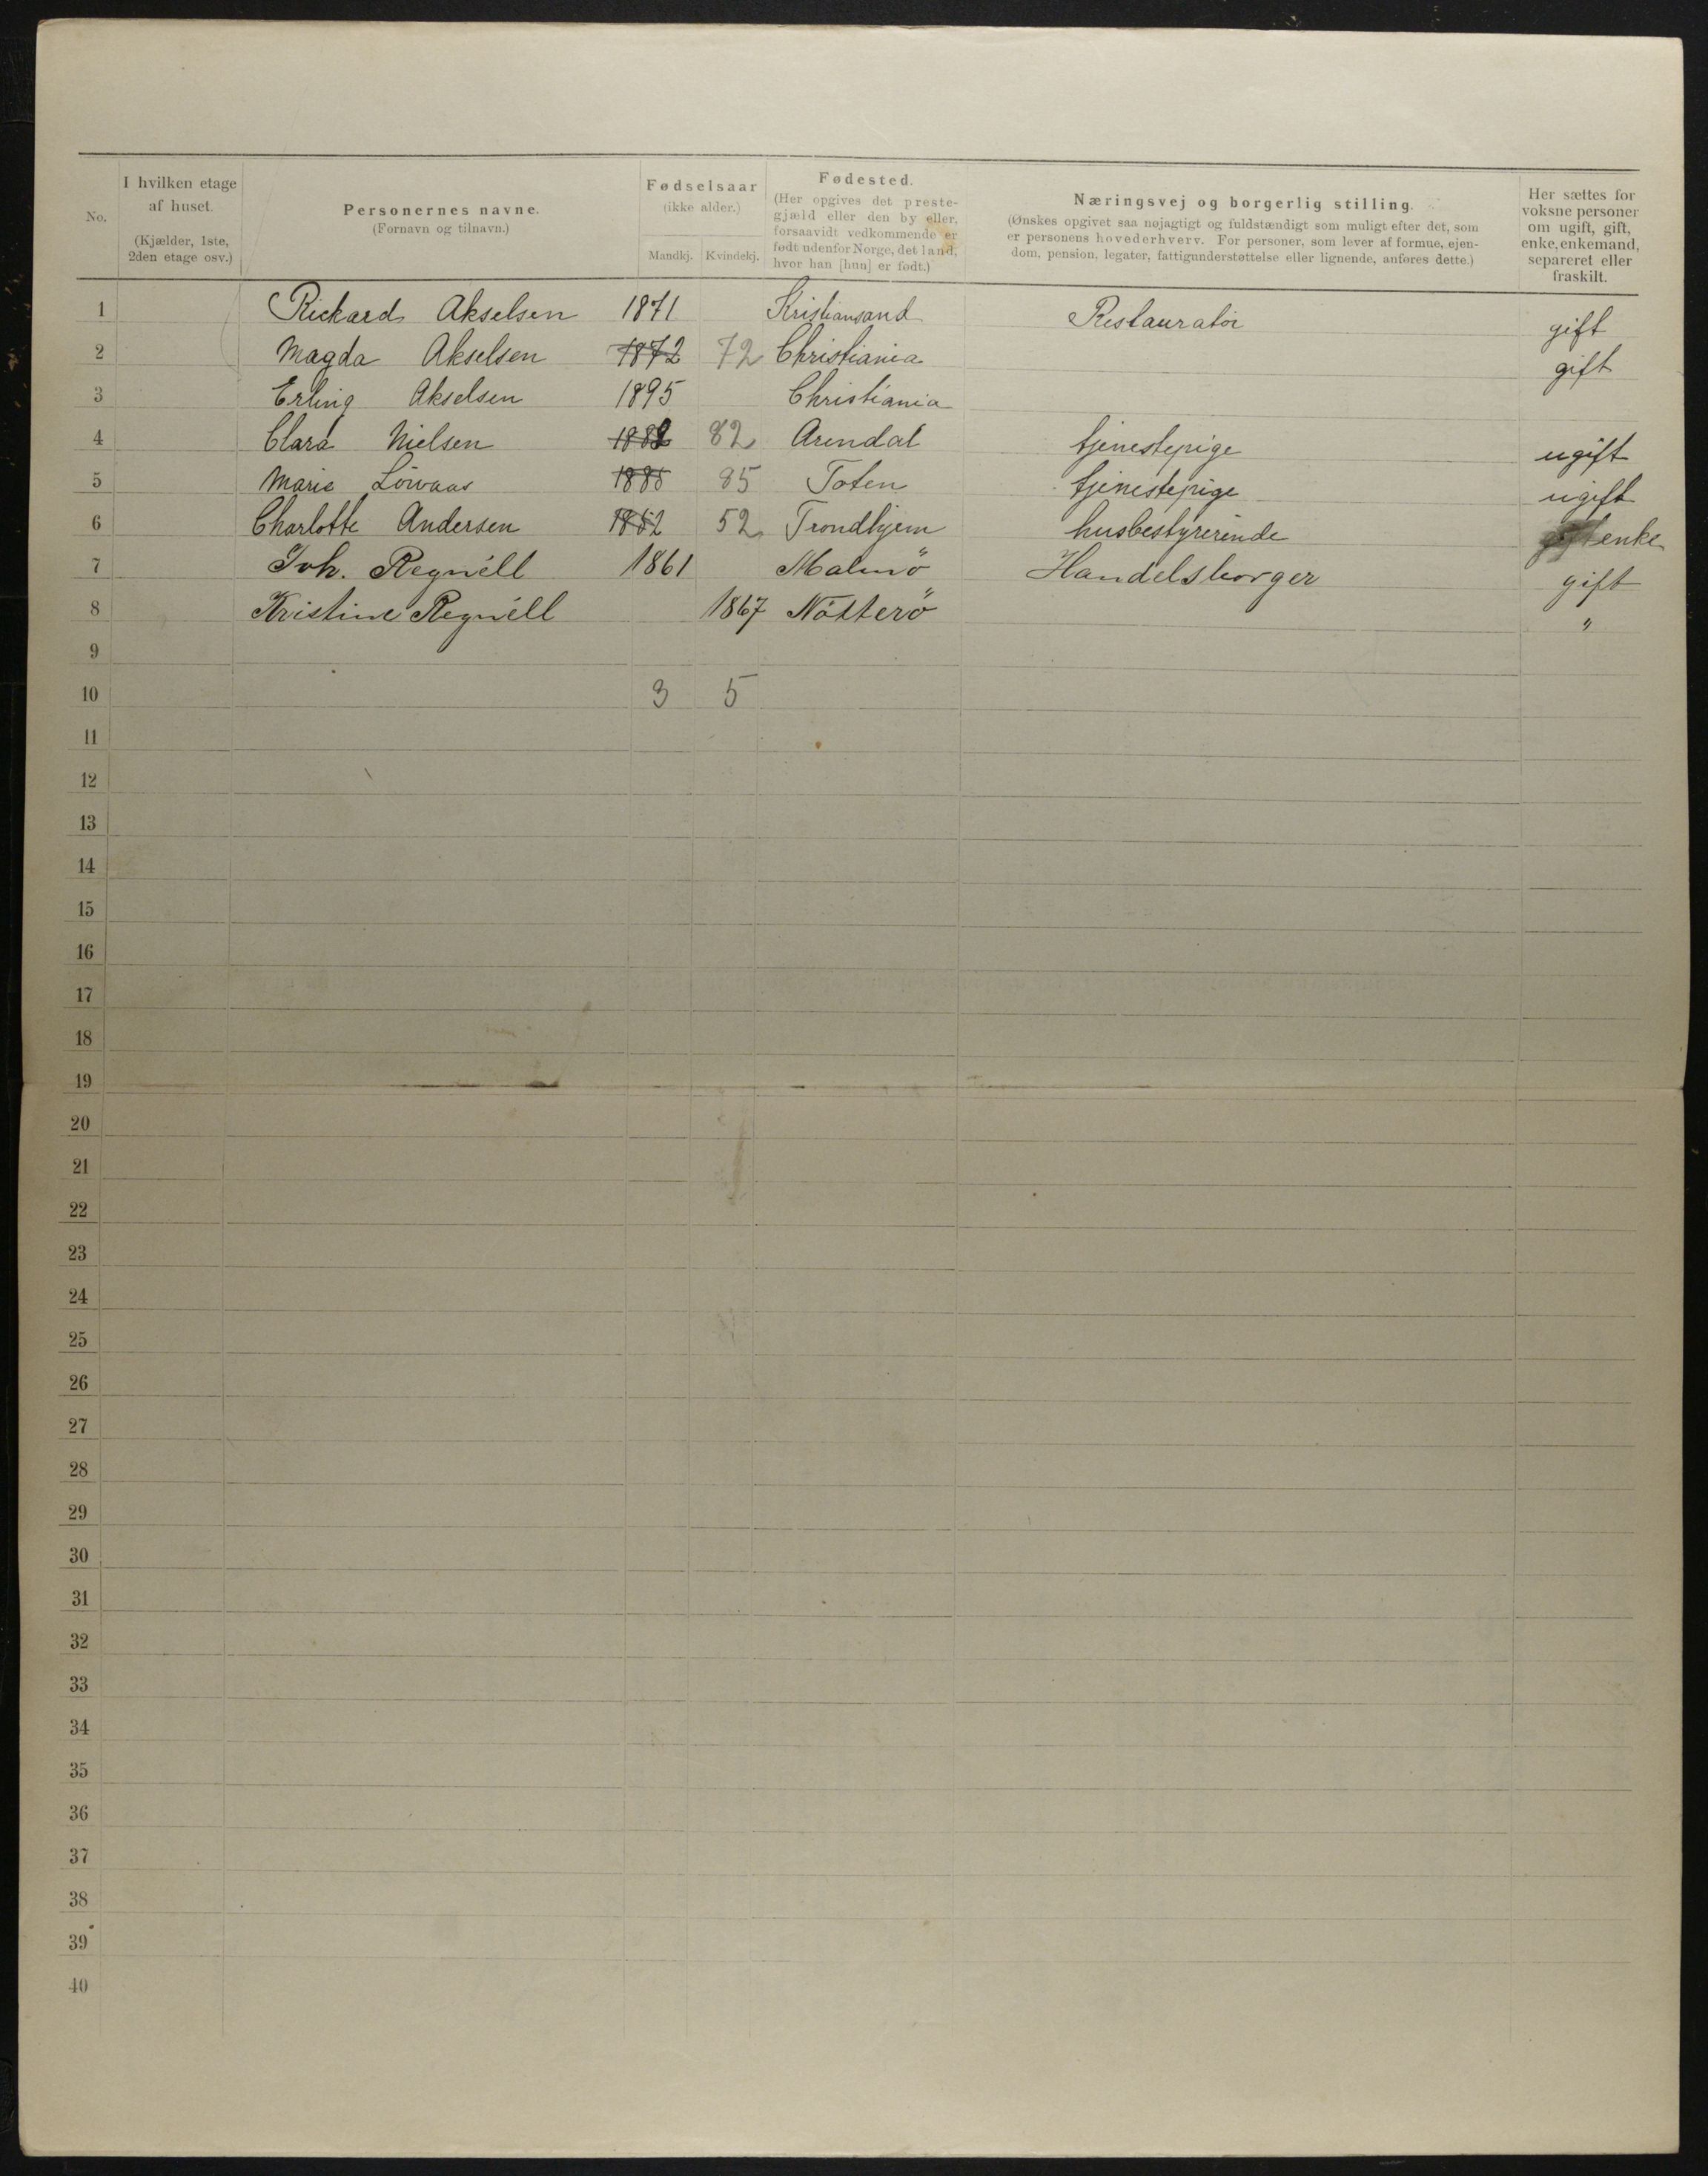 No.
I hvilken etage af huset. (Kjælder, 1ste, 2den etage osv.)
Personernes navne. (Fornavn og tilnavn.)
Fødselsaar (ikke alder.) Mandkj. Kvindekj.
Fødested. (Her opgives det prestegjæld eller den by eller, forsaavidt vedkommende er født udenfor Norge, det land, hvor han [hun] er født.)
Næringsvej og borgerlig stilling. (Ønskes opgivet saa nøjagtigt og fuldstændigt som muligt efter det, som er personens hovederhverv. For personer, som lever af formue, ejendom, pension, legater, fattigunderstøttelse eller lignende, anføres dette.)
Her sættes for voksne personer om ugift, gift, enke, enkemand, separeret eller fraskilt.
1 Rickard Akselsen 1871 Kristiansand Restauratör gift
2 Magda Akselsen 1872 72 Christiania gift
3 Erling Akselsen 1895 Christiania
4 Clara Nielsen 1882 82 Arendal tjenestepige ugift
5 Marie Lövaas 1885 85 Toten tjenestepige ugift
6 Charlotte Andersen 1852 52 Trondhjem husbestyrerinde enke
7 Joh. Regnéll 1861 Malmö Handelsborger gift
8 Kristine Regnéll 1867 Nötterö "
9
10 3 5
11
12
13
14
15
16
17
18
19
20
21
22
23
24
25
26
27
28
29
30
31
32
33
34
35
36
37
38
39
40